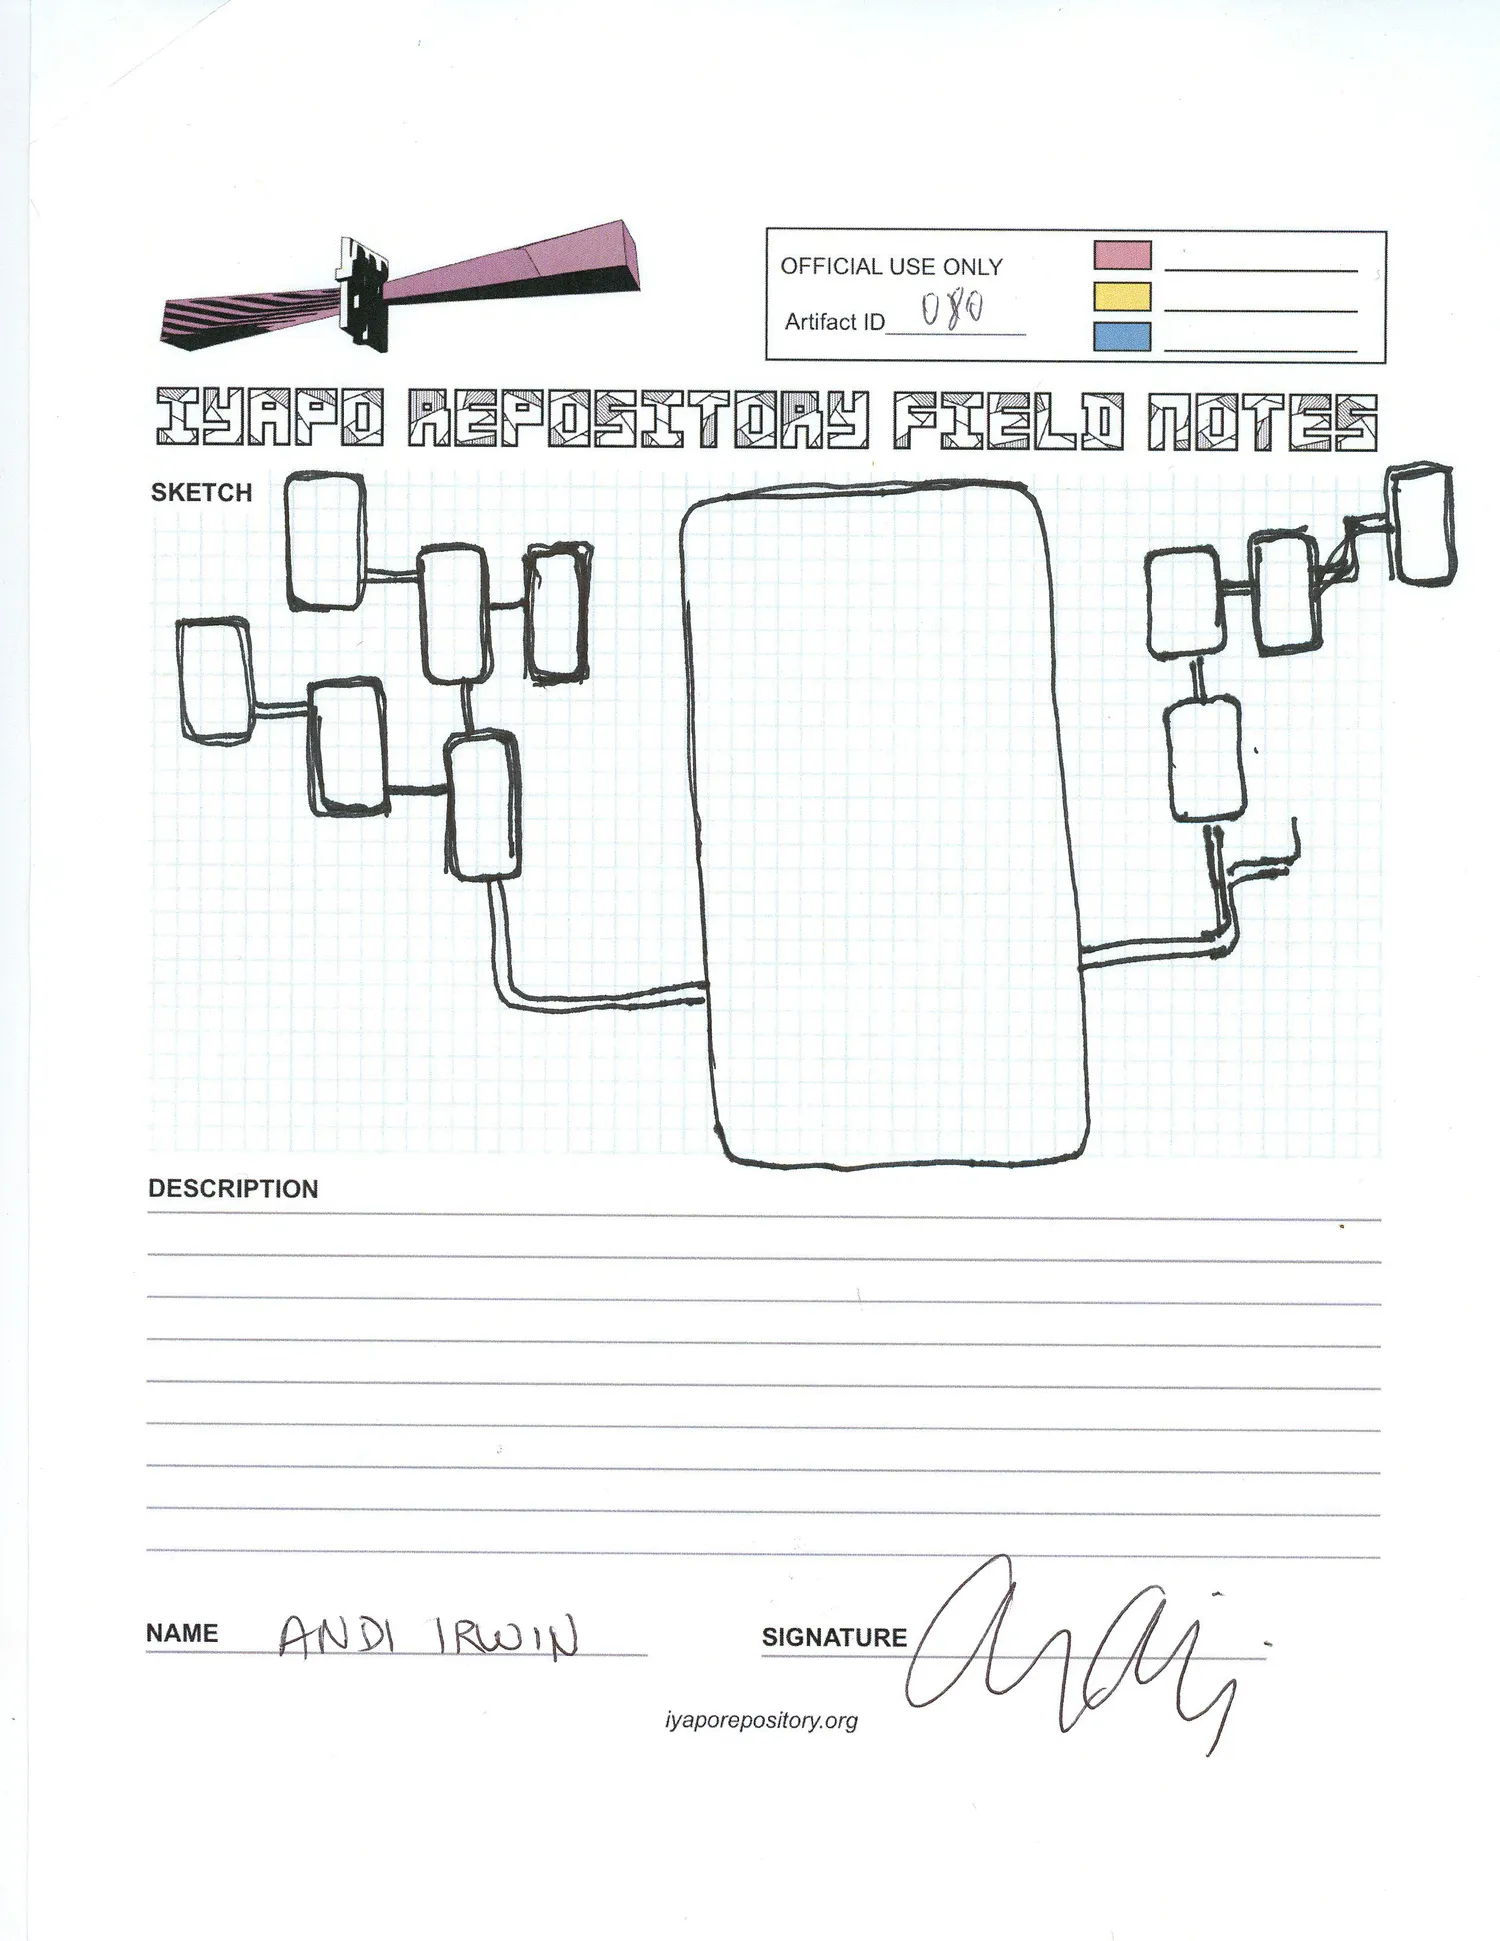 OFFICIAL USE ONLY
Artifact ID 080
IYAPO REPOSITORY FIELD NOTES
SKETCH
DESCRIPTION
NAME ANDI IRWIN
SIGNATURE Andi
iyaporepository.org